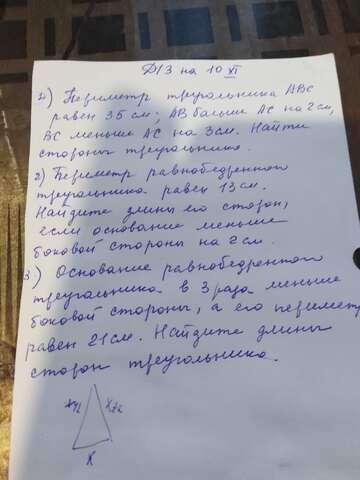 Д/З на 10 XI
1) Периметр треугольника ABC
равен 35 см; AB больше AC на 2 см,
BC меньше AC на 3 см. Найти
стороны треугольника.
2) Периметр равнобедренного
треугольника равен 13 см.
Найдите длины его сторон,
если основание меньше
боковой стороны на 2 см.
3) Основание равнобедренного
треугольника в 3 раза меньше
боковой стороны, а его периметр
равен 21 см. Найдите длины
сторон треугольника.
x+2 x+2
x